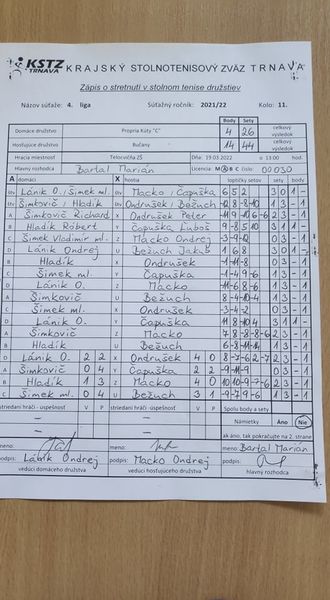 KSTZ TRNAVA KRAJSKÝ STOLNOTENISOVÝ ZVÄZ TRNAVA
Zápis o stretnutí v stolnom tenise družstiev
Názov súťaže: 4. liga Súťažný ročník: 2021/22 Kolo: 11.
Body Sety
Domáce družstvo Propria Kúty "C" 4 26 celkový výsledok
Hosťujúce družstvo Bučany 14 44 celkový výsledok
Hracia miestnosť Telocvičňa ZŠ Dňa: 19.03.2022 o 13:00 hod.
Hlavný rozhodca Bartal Marián Licencia: M A B C číslo: 00030
A domáci X hostia loptičky setov sety body
Štv Lánik O./Šimek ml. Štv Macko/Čapuška 6 5 2 3 0 1 -
Štv Šimkovič/Hladík Štv Ondrušek/Bežuch
A Šimkovič Richard X Ondrušek Peter 2 3 - 1
B Hladík Róbert Y Čapuška Ľuboš
C Šimek Vladimír ml. Z Macko Ondrej -3 -9 -12 0 3 - 1
D Lánik Ondrej U Bežuch Jakub 1 6 8 3 0 1 -
B Hladík X Ondrušek -1 -11 -8 0 3 - 1
C Šimek ml. Y Čapuška -1 -4 9 -6 1 3 - 1
D Lánik O. Z Macko -11 -6 8 -6 1 3 - 1
A Šimkovič U Bežuch 8 -4 -10 -4 1 3 - 1
C Šimek ml. X Ondrušek -3 -4 -2 0 3 - 1
D Lánik O. Y Čapuška 11 8 -10 4 3 1 1 -
A Šimkovič Z Macko 7 8 -8 -8 -6 2 3 - 1
B Hladík U Bežuch 6 -8 -11 -11 1 3 - 1
D Lánik O. 2 2 X Ondrušek 4 0 8 -7 -6 2 -7 2 3 - 1
A Šimkovič 0 4 Y Čapuška 2 2 -9 -11 -9 0 3 - 1
B Hladík 1 3 Z Macko 4 0 10 10 -9 -7 -6 2 3 - 1
C Šimek ml. 0 4 U Bežuch 3 1 -9 -7 9 -6 1 3 - 1
striedaní hráči - úspešnosť V P striedaní hráči - úspešnosť V P Spolu body a sety
Námietky Áno Nie
ak áno, tak pokračujte na 2. strane
meno: meno: meno: Bartal Marián
podpis: Lánik Ondrej podpis: Macko Ondrej podpis:
vedúci domáceho družstva vedúci hosťujúceho družstva hlavný rozhodca